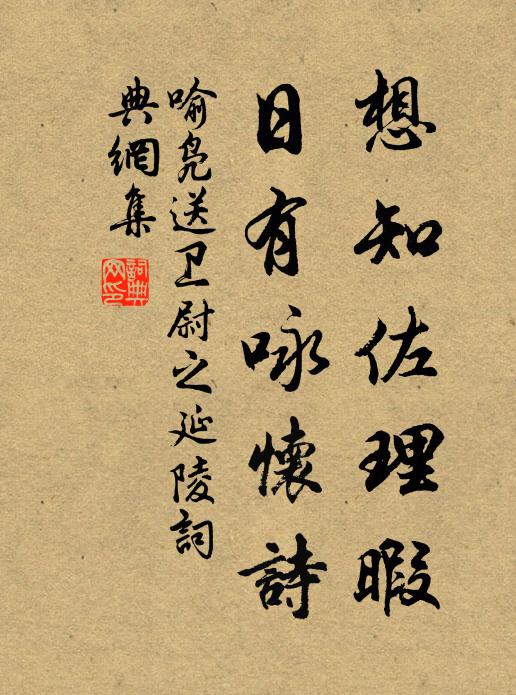 想知佐理暇
日有咏懷詩
喻凫送卫尉之延陵詞
典網集
詞典網印